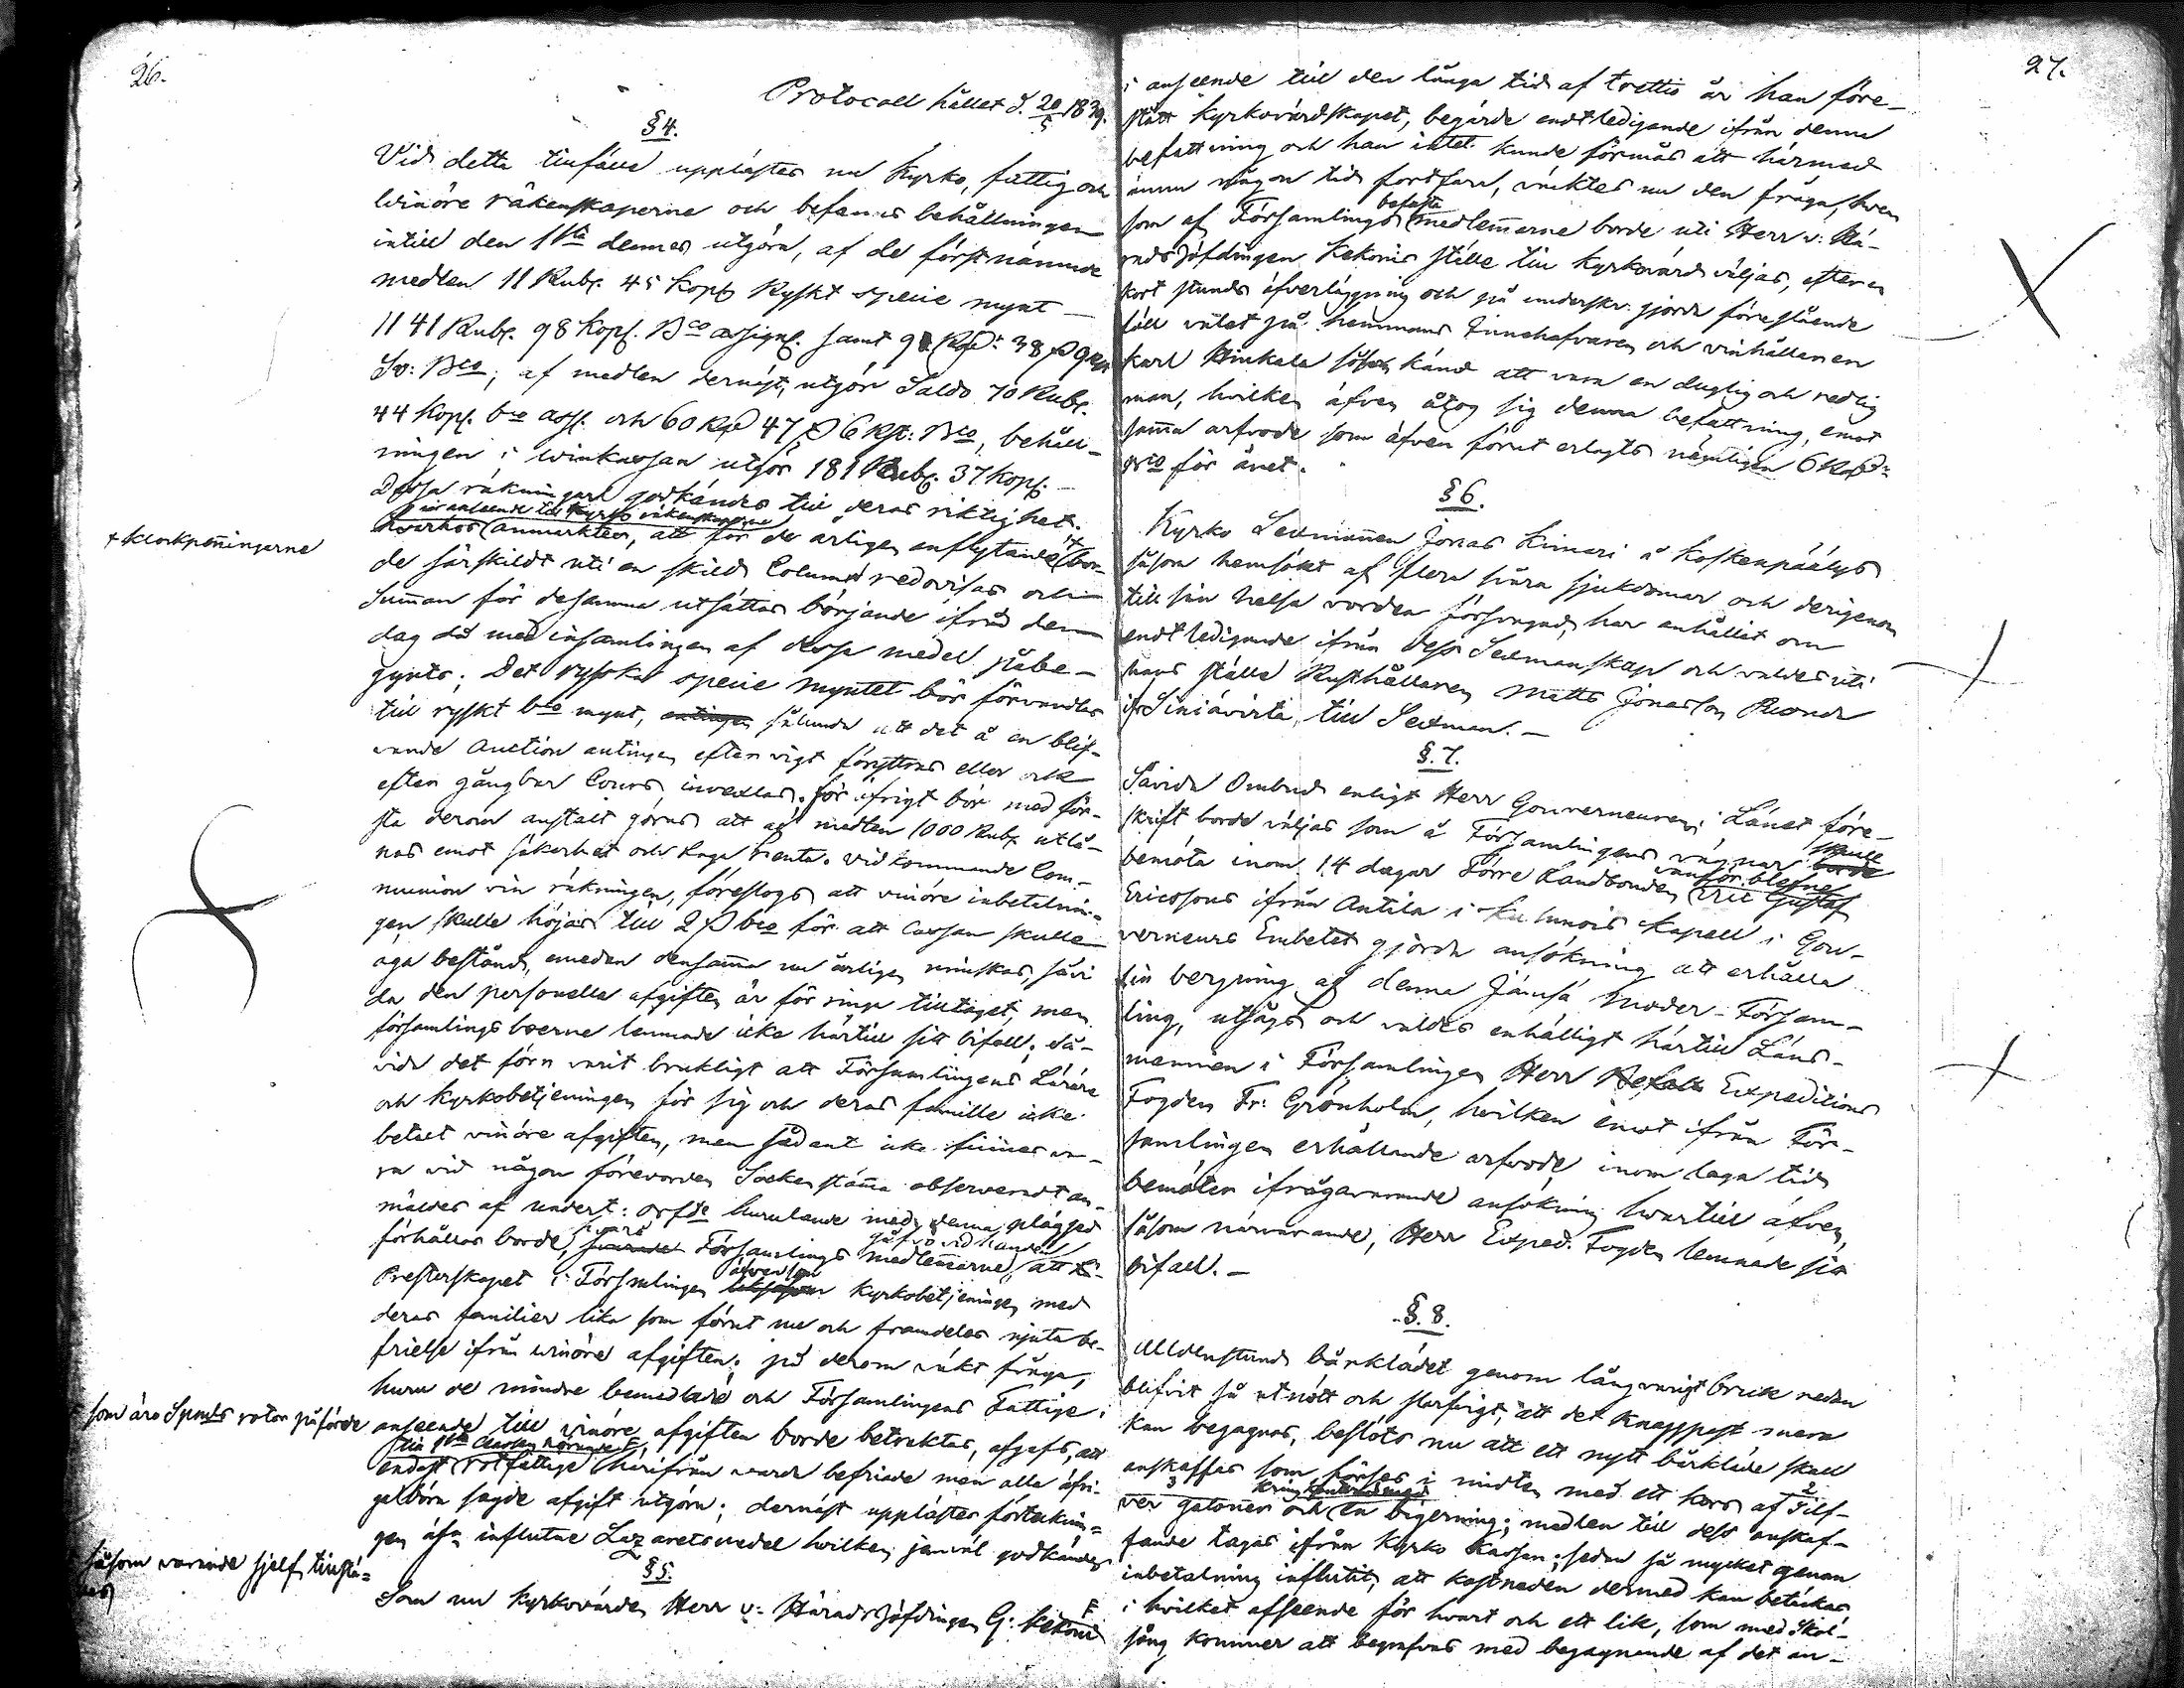 26.
Protocoll hållet d. 20/5 1839.
§ 4.
Vid detta tillfälle upplästes nu Kyrko, fattig och
winöre räkenskaperne och befanns behållningen
intill den 1sta dennes utgöra, af de förstnämnde
medlen 11 Rub. 45 Kop. Ryskt specie mynt
1141 Rub. 98 Kop. Bco assign. samt 98
Sv: Bco; af medlen dernäst, utgör Saldo 70 Rub.
44 Kop. bco ass. och 60 Rd 47 ß 6 rst: Bco, behåll-
ningen i winkassan utgör 181 Rub. 37 Kop. -
Dessa räkningar godkändes till deras riktighet.
i anseende till Kyrko räkenskaperne
hvarhos anmärktes, att för de årligen influtande + bor-
+ klockpenningarne
de särskildt uti en skild Column redovisas och
Summan för desamma utsättas började ifrån den
dag då med insamlingen af dessa medel påbe-
gynts; Det ryska specie myntet bör förvandlas
till ryskt bco mynt, antingen sålunda att det å en blif-
vande Auction antingen efter vigt försyttras eller ock
efter gångbar Cours invexlas; för öfrigt bör med för-
sta derom anstalt göras att af medlen 1000 Rub. utlå-
nas emot säkerhet och laga Renta. Vidkommande Com-
munion vin räkningen, föreslogs att winöre inbetalnin-
gen skulle höjas till 2 ß bco för att Cassan skulle
äga bestånd, emedan densamma nu årligen minskas, såvi
da den personella afgiften är för ringa tilltaget, men
församlingsboerne lemnade icke härtill sitt bifall; Så-
vida det förn varit brukligt att Församlingens Lärare
och Kyrkobetjeningen för sig och deras familie icke
betalt vinöre afgiften, men sådant icke finnes va-
ra vid någon förevarden Sockenstämma observeradt an-
mäldes af undert: ordfde hurulunde med denna plägsed
förhållas borde, hvarå Församlings medlemmarne gåfvo vid handen att
Presterskapet i Församlingen äfvensom Kyrkobetjeningen med
deras familier lika som förut nu och framdeles njuta be-
frielse ifrån winöre afgiften; på derom väkt fråga,
huru de mindre bemedlade och Församlingens Fattige i
som äro Spmåls rotor påförde
anseende till winöre afgiften borde betraktas, afgafs, att
till 1sta Classen hörande
endast rotfattige härifrån wara befriade men alla öfri-
ga böra sagde afgift utgöra; dernäst upplästes förteknin-
gen öfver influtne Lazaretsmedel hvilken jemväl godkändes
§ 5.
såsom warande sjelf tillstä-
des
Som nu Kyrkovärden Herr v: Häradshöfdingen G: F Kekoni
27.
i anseende till den långa tid af trettio år han före-
stått Kyrkovärdskapet, begärde entledigande ifrån denna
befattning och han intet kunde förmås att härmed
ännu någon tid fortfara, väcktes nu den fråga, hvem
som af Församlings befasta medlemmarne borde uti Herr v: Hä-
radshöfdingen Kekonis ställe till Kyrkovärd väljas, efter en
kort stunds öfverläggning och på underskr. gjorda föreslående
föll valet på hemmans Innehafvaren och vinhållaren
Karl Hinkala såsom känd att vara en duglig och redlig
man, hvilken äfven åtog sig denna befattning, emot
samma arfvode som äfven förut erlagts nämligen 6 Rd
Bco för året.
§ 6.
Kyrko Sexmannen Jonas Kimari å Koskenpää by
såsom hemsökt af flera svåra sjukdomar och derigenom
till sin helsa worden försvagad, har anhållit om
endtledigande ifrån dess Sexmanskap och valdes uti
hans ställe Rusthållaren Matts Jonasson
ifr Siniävirta, till Sexman. -
§. 7.
Såvida Ombud enligt Herr Gouverneurens i Länet före-
skrift borde väljas som å Församlingens vägnar skulle borde
bemöta inom 14 dagar Förre Landbonden vanför blefne Eric Gustaf
Ericssons ifrån Antila i Kuhmois Kapell i Gou-
verneurs Embetet gjorda ansökning att erhålla
sin bergning af denna Jämsä Moder-Försam-
ling, utsågs och valdes enhälligt härtill Läns-
mannen i Församlingen Herr Expeditions
Fogden Fr: Grönholm, hvilken emot ifrån För-
samlingen erhållande arfvode, inom laga tid
bemöter ifrågavarande ansökning hwartill äfven,
såsom närvarande, Herr Exped. Fogden lemnade sitt
bifall. -
§. 8.
Alldenstund bårklädet genom långvarigt bruk redan
blifvit så utnött och slarfvigt, att det knappast mera
kan begagnas, beslöts nu att ett nytt bårkläde skall
anskaffas som förses i midten med ett kors af 2 Silf-
ver galoner och en bigerning; medlen till dess anskaf-
3
fande tagas ifrån Kyrko Kassan; sedan så mycket genom
inbetalning influtit, att kostnaden dermed kan betäckas
i hvilket afseende för hvart och ett lik, som med Skol-
sång kommer att begrafvas med begagnande af det an-